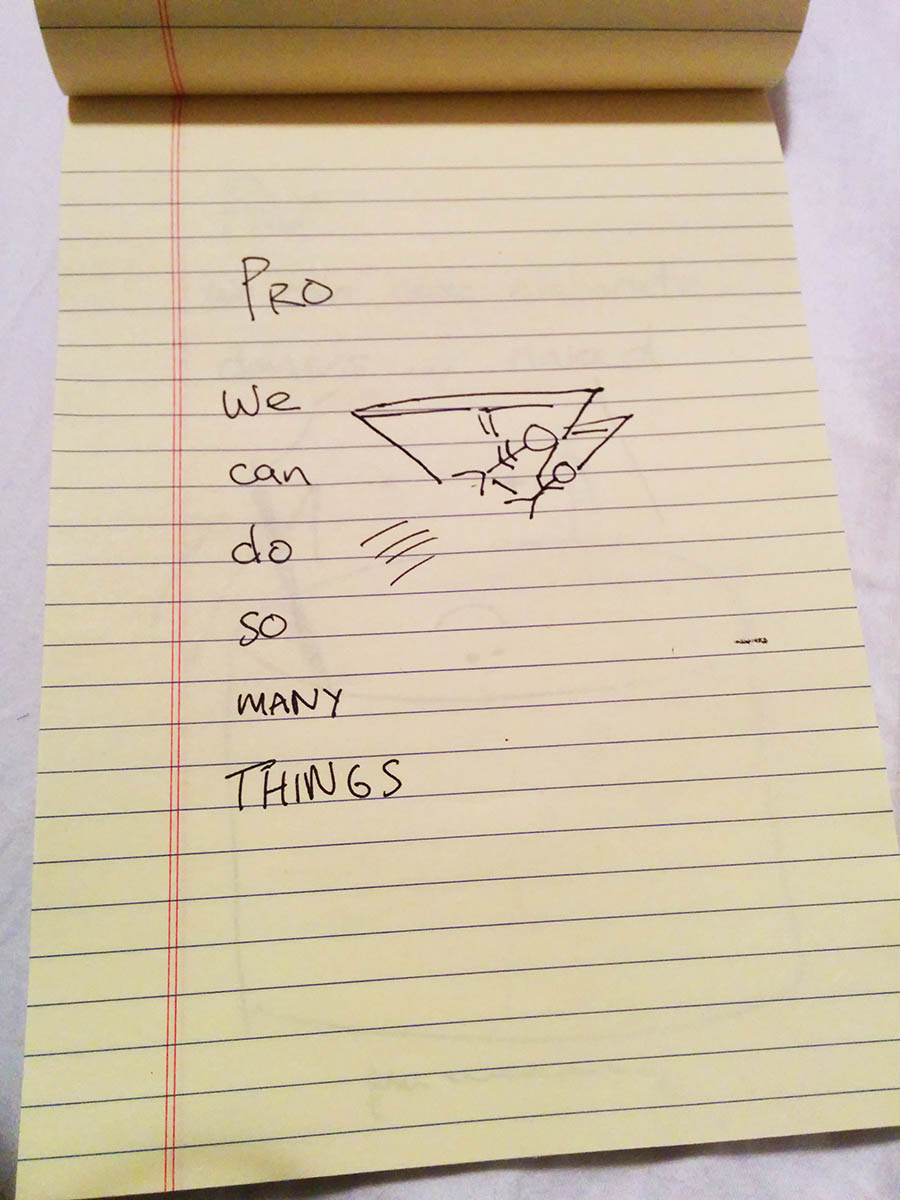 PRO
We
can
do
so
MANY
THINGS